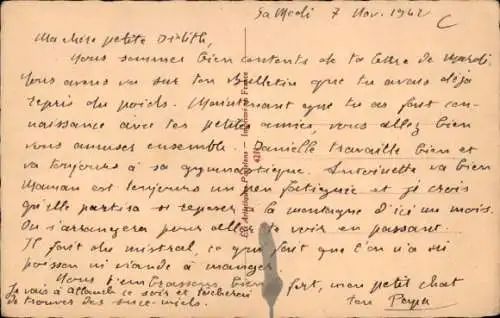 Samedi 7 Nov. 1942
C
Ma chère petite
Nous sommes bien contents de ta lettre de mardi.
Nous avons vu sur ton Bulletin que tu avais déjà
repris du poids. Maintenant que tu as fait con-
naissance avec tes petites amies, vous allez bien
vous amuser ensemble. Danielle travaille bien et
va toujours à sa gymnastique. Antoinette va bien
Maman est toujours un peu fatiguée et je crois
qu'elle partira se reposer à la montagne d'ici un mois.
On s'arrangera pour aller te voir en passant.
Il fait du mistral, ce qui fait que l'on n'a ni
poisson ni viande à manger
Nous t'embrassons bien fort, mon petit chat
Je vais à Allauch ce soir et tacherai
de trouver des
ton Papa